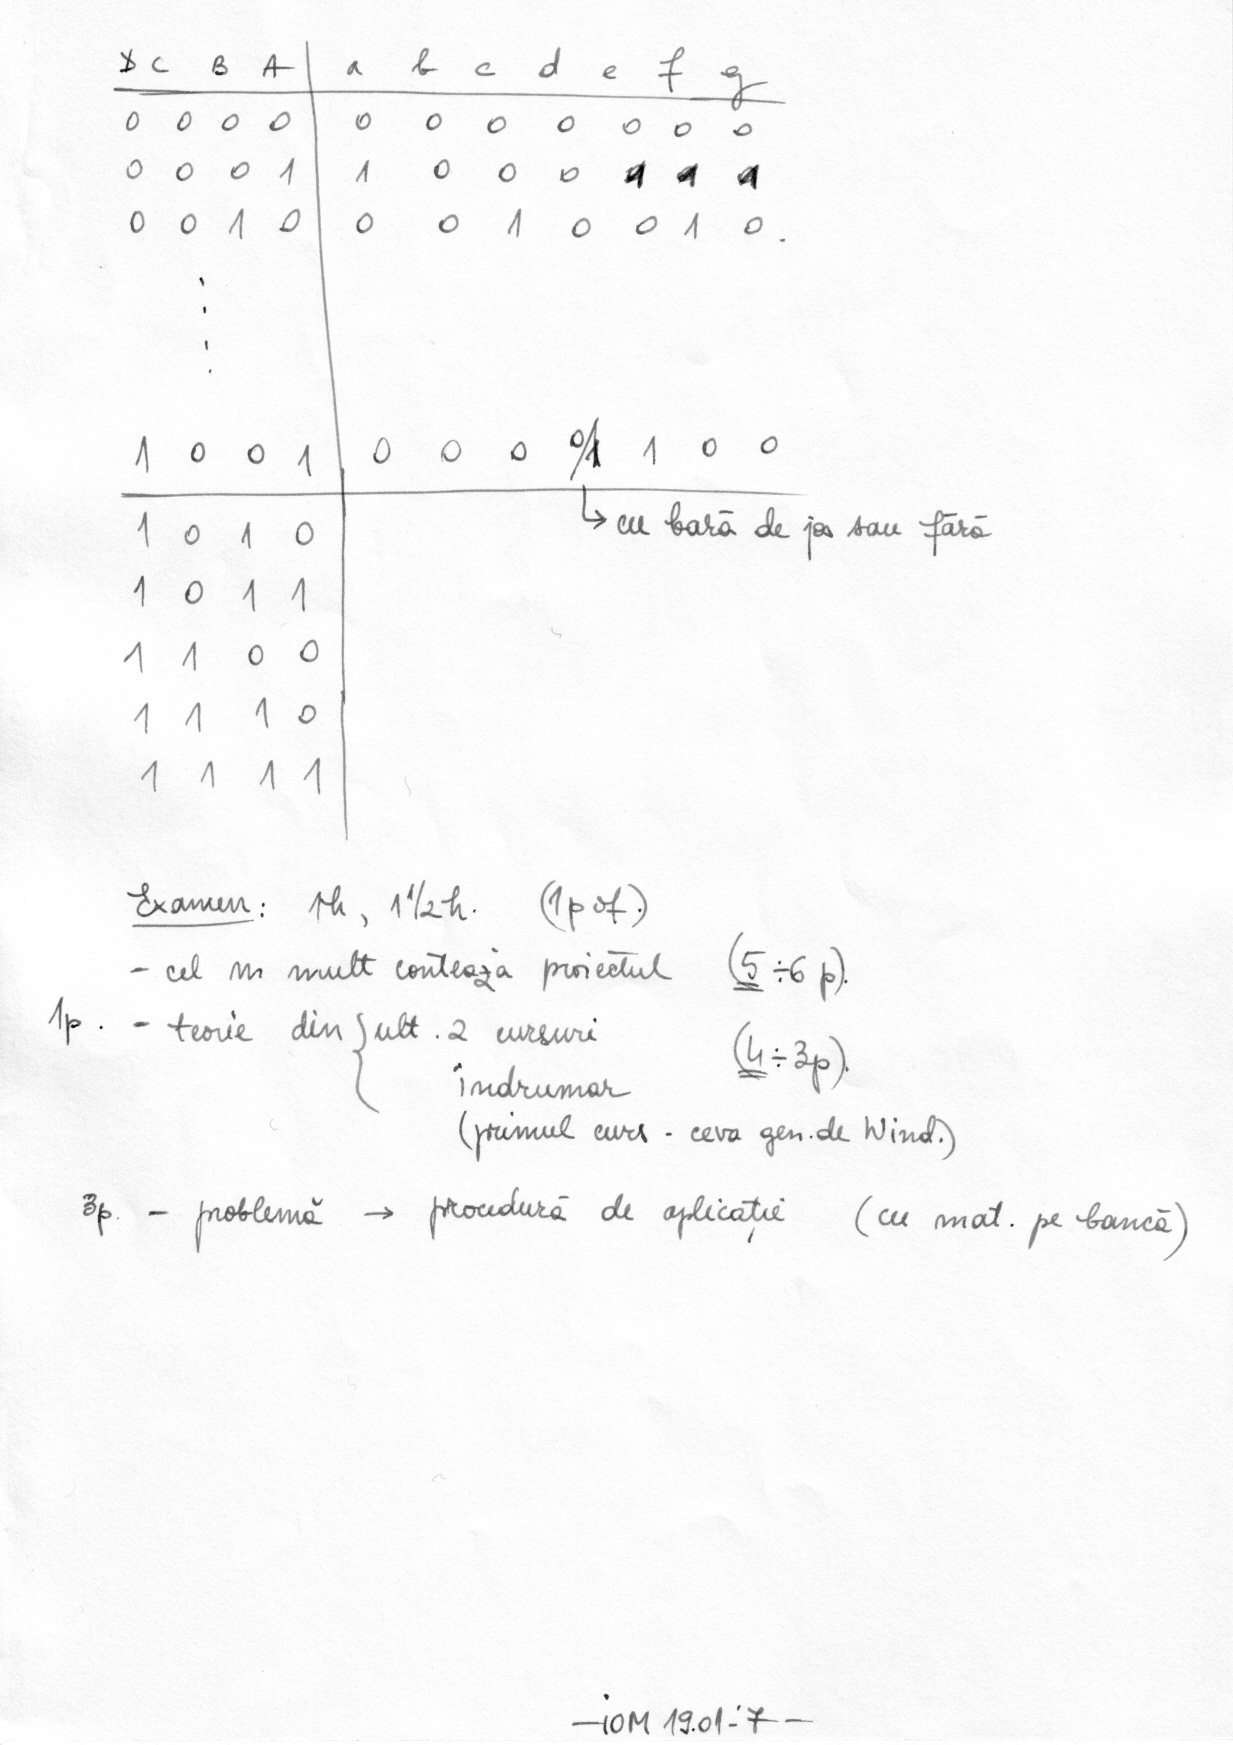 D C B A a b c d e f g
0 0 0 0 0 0 0 0 0 0 0
0 0 0 1 1 0 0 0 1 1 1
0 0 1 0 0 0 1 0 0 1 0.
1 0 0 1 0 0 0 0/1 1 0 0
↳ cu bară de jos sau fără
1 0 1 0
1 0 1 1
1 1 0 0
1 1 1 0
1 1 1 1
Examen: 1h, 1 1/2 h. (1p of.)
- cel m mult contează proiectul (5 ÷ 6 p).
1p. - teorie din { ult. 2 cursuri (4 ÷ 3p).
îndrumar
(primul curs - ceva gen. de Wind.)
3p. - problemă → procedură de aplicație (cu mat. pe bancă)
- iOM 19.01-'7 -